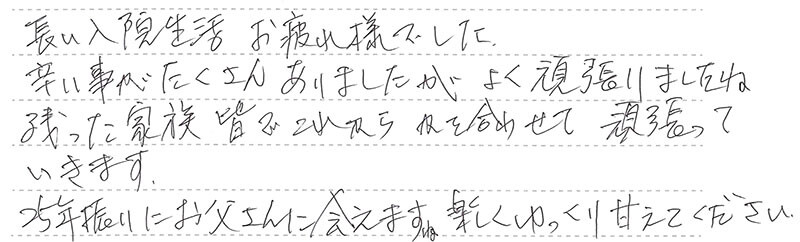 長い入院生活 お疲れ様でした.
辛い事がたくさん ありましたが よく頑張りましたね
残った家族 皆でこれから 力を合わせて 頑張って
いきます.
25年振りにお父さんに会えますね 楽しくゆっくり甘えてください.